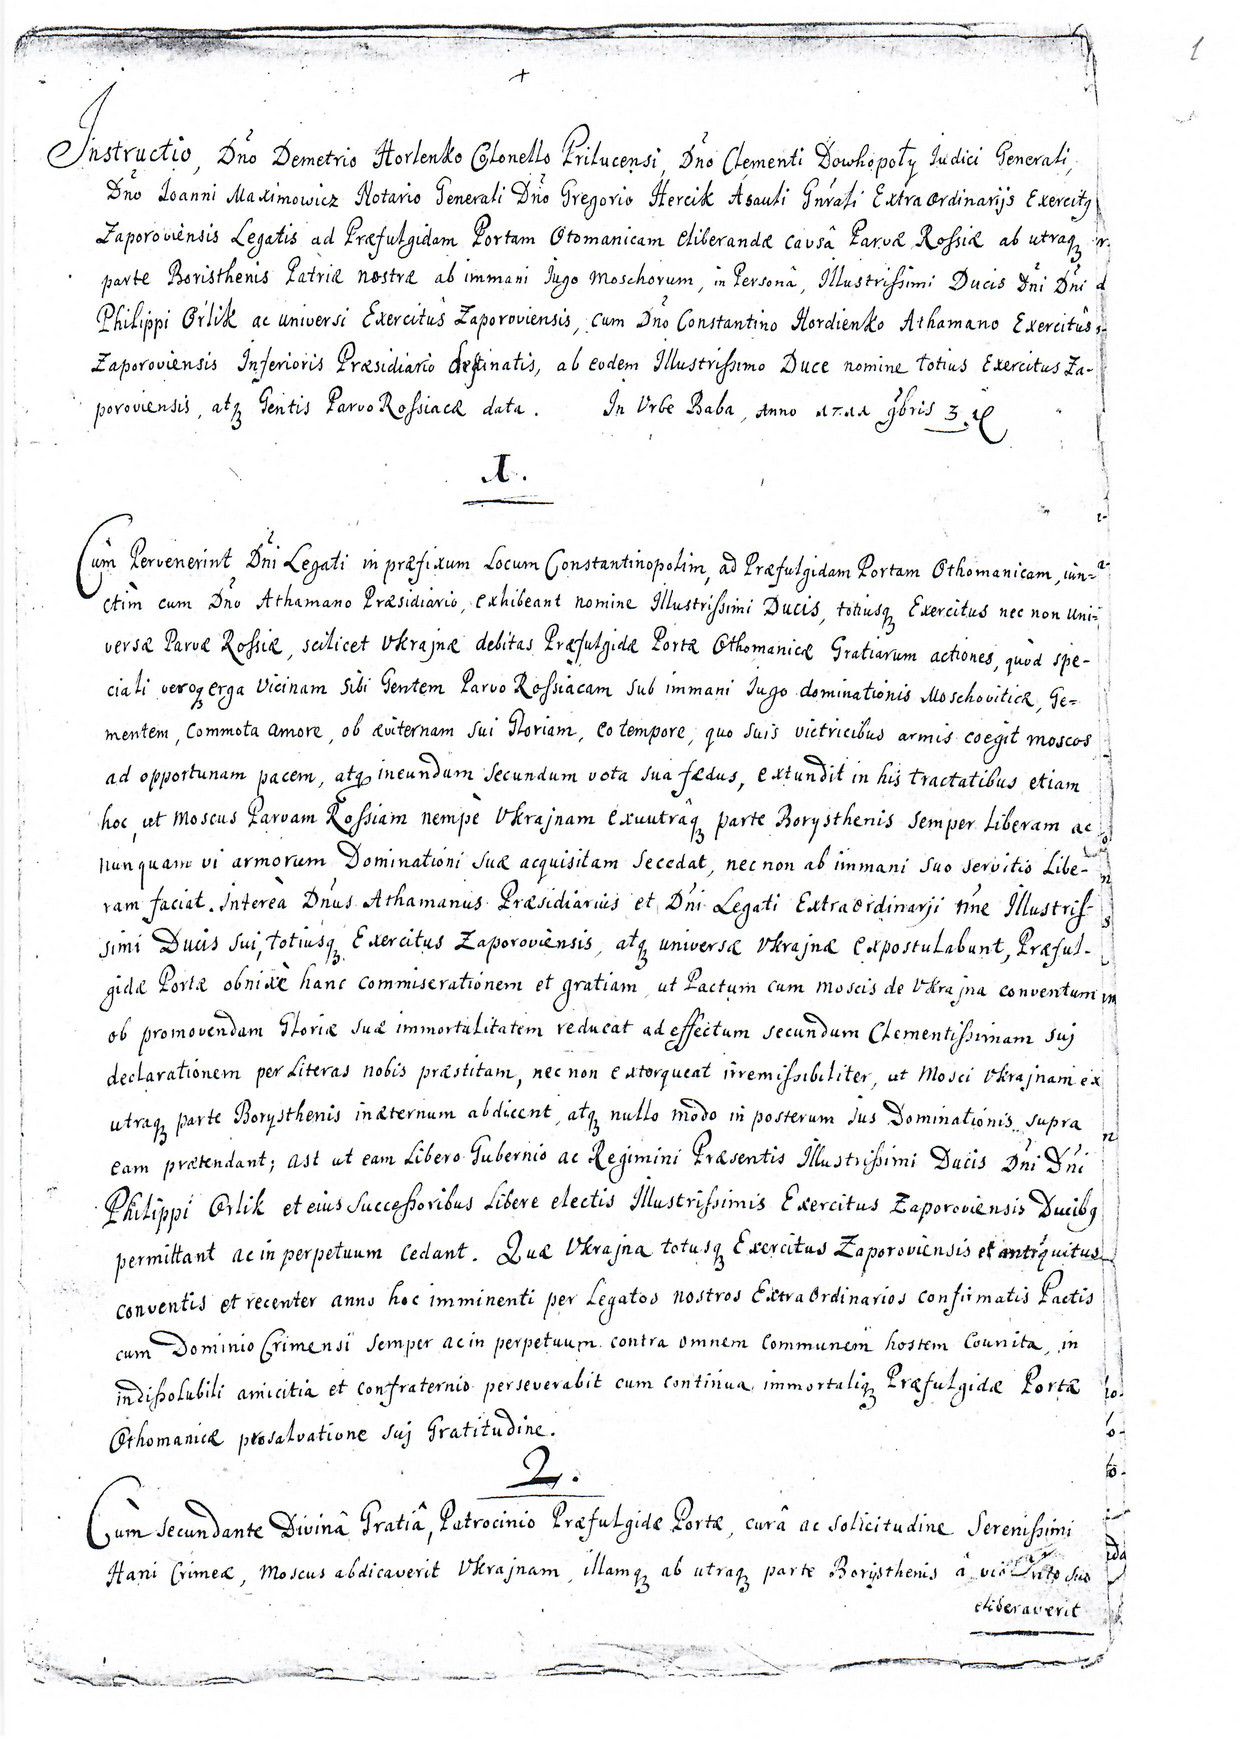 1
+
Instructio, Dn̄o Demetrio Horlenko Colonello Prilucensi, Dn̄o Clementi Dowhopoły Iudici Generali,
Dn̄o Ioanni Maximowicz Notario Generali Dn̄o Gregorio Hercik Asauli Gn̄rali Extraordinarijs Exercitꝰ
Zaporoviensis Legatis ad Præfulgidam Portam Otomanicam eliberandæ causâ Parvæ Rossiæ ab utraqꝫ
parte Boristhenis Patriæ nostræ ab immani Iugo Moschorum, in Personâ, Illustrissimi Ducis Dn̄i Dn̄i
Philippi Orlik ac universi Exercitûs Zaporoviensis, cum Dn̄o Constantino Hordienko Athamano Exercitûs
Zaporoviensis Inferioris Præsidiario destinatis, ab eodem Illustrissimo Duce nomine totius Exercitus Za-
poroviensis, atqꝫ Gentis Parvo Rossiacæ data. In Urbe Baba, Anno 1711 9bris 3.
1.
Cùm Pervenerint Dn̄i Legati in præfixum Locum Constantinopolim, ad Præfulgidam Portam Othomanicam, iun=
ctìm cum Dn̄o Athamano Præsidiario, exhibeant nomine Illustrissimi Ducis, totiusqꝫ Exercitus nec non Uni=
versæ Parvæ Rossiæ, scilicet Ukrajnæ debitas Præfulgidæ Portæ Othomanicæ Gratiarum actiones, quòd spe-
ciali veroqꝫ erga Vicinam Sibi Gentem Parvo Rossiacam sub immani Iugo dominationis Moschoviticæ, Ge=
mentem, Commota amore, ob æviternam sui Gloriam, eo tempore, quo suis victricibus armis coegit moscos
ad opportunam pacem, atqꝫ ineundum secundum vota sua fædus, extundit in his tractatibus etiam
hoc, ut Moscus Parvam Rossiam nempè Ukrajnam ex utrâqꝫ parte Borysthenis semper Liberam ac
nunquam vi armorum Dominationi suæ acquisitam Secedat, nec non ab immani suo servitio Libe-
ram faciat. Intereà Dn̄us Athamanus Præsidiarius et Dn̄i Legati Extraordinarji nn̄e Illustris-
simi Ducis sui, totiusqꝫ Exercitus Zaporoviensis, atqꝫ universæ Ukrajnæ expostulabunt, Præful-
gidæ Portæ obnixè hanc commiserationem et gratiam, ut Pactum cum moscis de Ukrajna conventum
ob promovendam Gloriæ suæ immortalitatem reducat ad effectum secundum Clementissimam suj
declarationem per Literas nobis præstitam, nec non extorqueat irremissibiliter, ut Mosci Ukrajnam ex
utraqꝫ parte Borysthenis inæternum abdicent, atqꝫ nullo modo in posterum ius Dominationis supra
eam prætendant; ast ut eam Libero Gubernio ac Regimini Præsentis Illustrissimi Ducis Dn̄i Dn̄i
Philippi Orlik et eius Successoribus Libere electis Illustrissimis Exercitus Zaporoviensis Ducibꝰ
permittant ac in perpetuum cedant. Quæ Ukrajna totusqꝫ Exercitus Zaporoviensis et antiquitus
conventis et recenter anno hoc imminenti per Legatos nostros Extraordinarios confirmatis Pactis
cum Dominio Crimensi semper ac in perpetuum contra omnem communem hostem Counita, in
indissolubili amicitia et confraternio perseverabit cum continua immortaliqꝫ Præfulgidæ Portæ
Othomanicæ pro salvatione suj Gratitudine.
2.
Cùm secundante Divinâ Gratiâ, Patrocinio Præfulgidæ Portæ, curâ ac solicitudine Serenissimi
Hani Crimeæ, Moscus abdicaverit Ukrajnam, illamqꝫ ab utraqꝫ parte Borysthenis â suo
eliberaverit